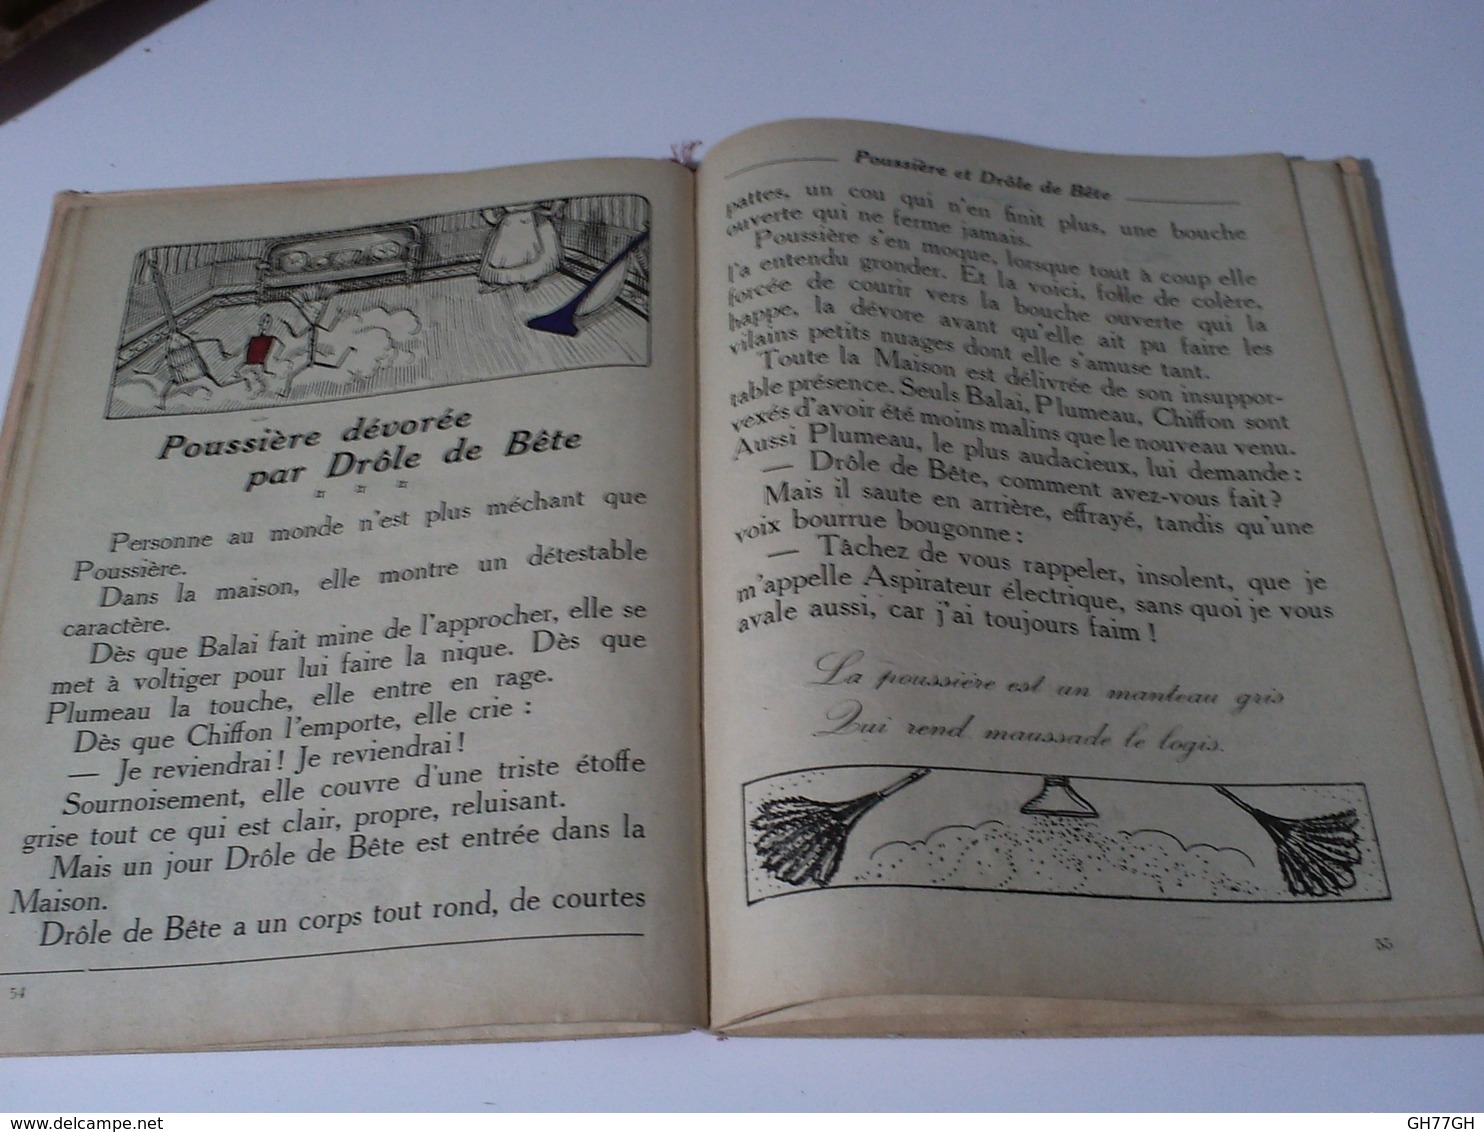 Poussière dévorée
par Drôle de Bête
Personne au monde n'est plus méchant que
Poussière.
Dans la maison, elle montre un détestable
caractère.
Dès que Balai fait mine de l'approcher, elle se
met à voltiger pour lui faire la nique. Dès que
Plumeau la touche, elle entre en rage.
Dès que Chiffon l'emporte, elle crie :
— Je reviendrai ! Je reviendrai !
Sournoisement, elle couvre d'une triste étoffe
grise tout ce qui est clair, propre, reluisant.
Mais un jour Drôle de Bête est entrée dans la
Maison.
Drôle de Bête a un corps tout rond, de courtes
54
Poussière et Drôle de Bête
pattes, un cou qui n'en finit plus, une bouche
ouverte qui ne ferme jamais.
Poussière s'en moque, lorsque tout à coup elle
l'a entendu gronder. Et la voici, folle de colère,
forcée de courir vers la bouche ouverte qui la
happe, la dévore avant qu'elle ait pu faire les
vilains petits nuages dont elle s'amuse tant.
Toute la Maison est délivrée de son insuppor-
table présence. Seuls Balai, Plumeau, Chiffon sont
vexés d'avoir été moins malins que le nouveau venu.
Aussi Plumeau, le plus audacieux, lui demande :
— Drôle de Bête, comment avez-vous fait ?
Mais il saute en arrière, effrayé, tandis qu'une
voix bourrue bougonne :
— Tâchez de vous rappeler, insolent, que je
m'appelle Aspirateur électrique, sans quoi je vous
avale aussi, car j'ai toujours faim !
La poussière est un manteau gris
Qui rend maussade le logis.
55
delcampe.net
GH77GH